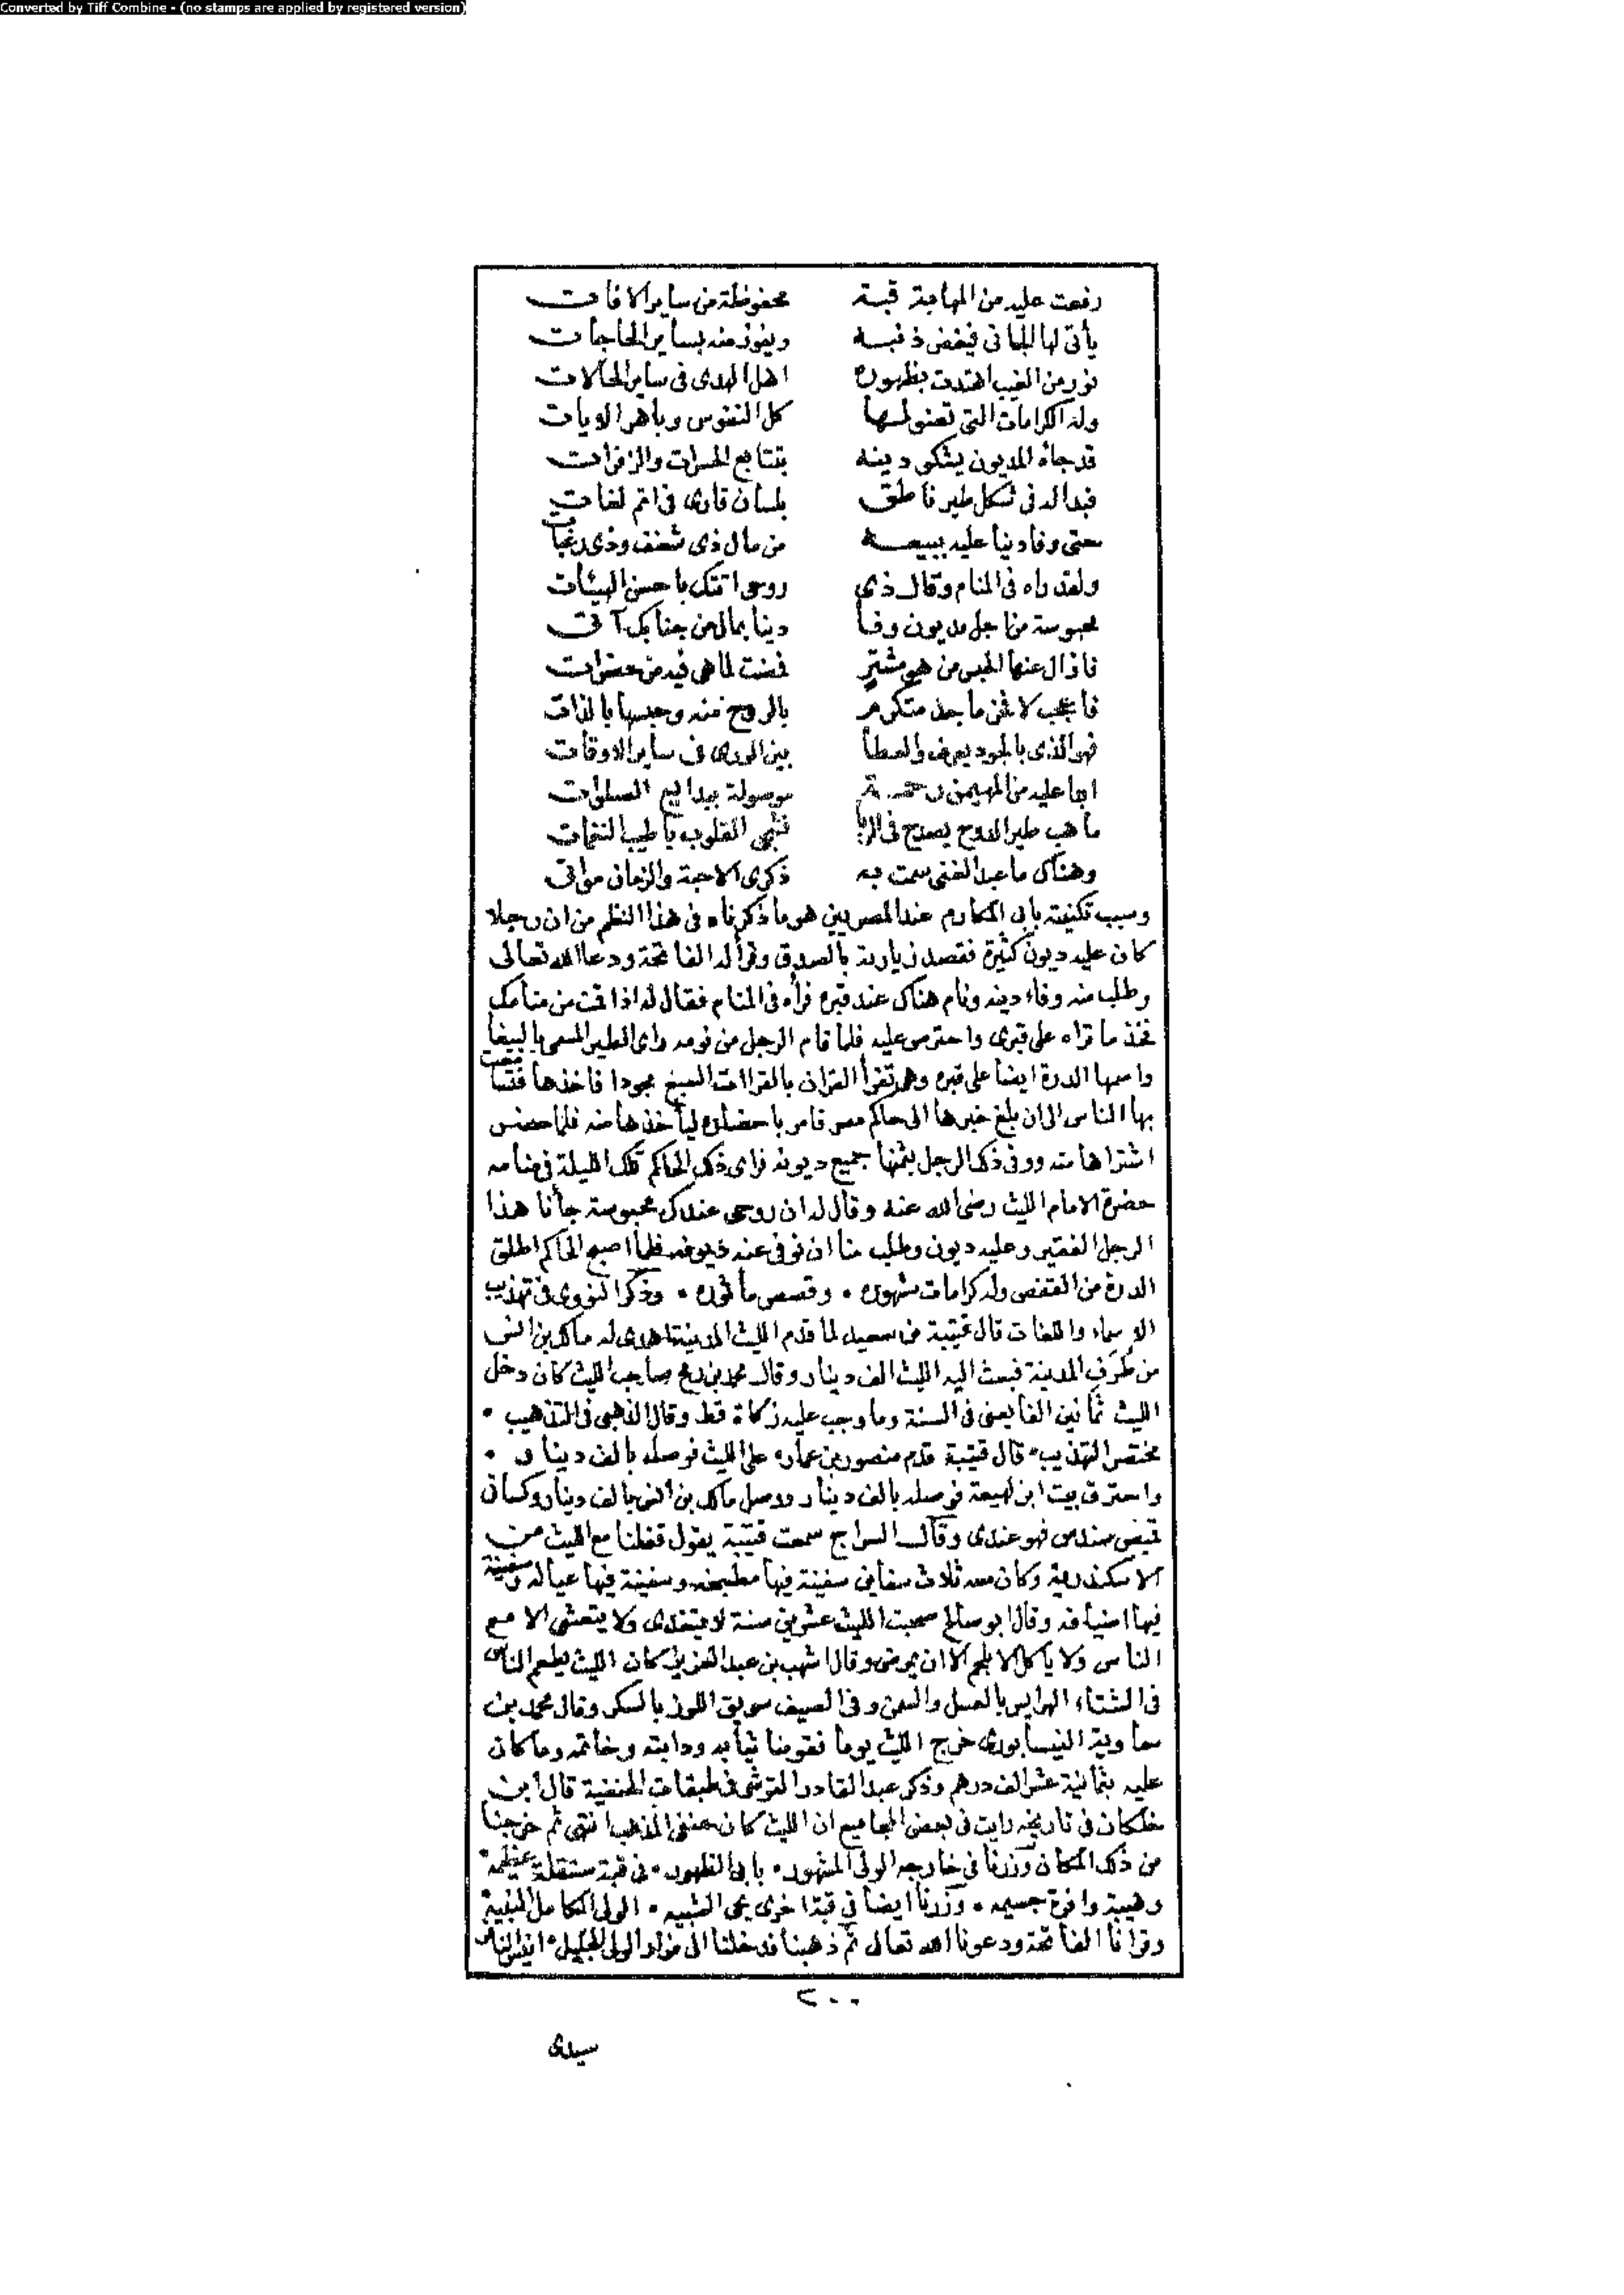 Converted by Tiff Combine - (no stamps are applied by registered version)
رفعت عليه من المهابة قبة محفوظة من ساير الافات
يأتى لها الجانى فيغفر ذنبه ويفوز منه بساير الحاجات
نور من الغيب اهتدت بظهوره اهل الهدى فى ساير الحالات
وله الكرامات التى تعنو لها كل النفوس وباهر الايات
قد جاه المديون يشكو دينه بتتابع الحسرات والزفرات
فبدا له فى شكل طير ناطق بلسان قارى فى اتم لغات
حتى وفا دينا عليه ببيعه من مال ذى شغف وذى رغبات
ولقد راه فى المنام وقال ذى روحى اتتك باحسن الهيئات
محبوسة من اجل مديون وفا دينا بمال من جنابك آتى
فازال عنها الحبس من هو مشتر
فاعجب لا غنى ماجد متكرم بالروح منه وحبسها بالذات
فهو الذى بالجود يعرف والعطا بين الورى فى ساير الاوقات
ابدا عليه من المهيمن رحمة موصولة
ما هب طير الدوح يصدح فى الربا القلوب باطيب النغمات
وهناك ما عبد الغنى سمت به ذكرى الاحبة والزمان مواتى
وسبب تكنيته بابى المكارم عند المصريين هو ما ذكرناه فى هذا النظم من ان رجلا
كان عليه ديون كثيرة فقصد زيارته بالصدق وقرأ له الفاتحة ودعا الله تعالى
وطلب منه وفاء دينه ونام هناك عند قبره فرأه فى المنام فقال له اذا قمت من منامك
فخذ ما تراه على قبرى واحترس عليه فلما قام الرجل من نومه راى الطير المسمى بالببغا
واسمها الدرة ايضا على قبره وهى تقرأ القران بالقراات السبع مجودا فاخذها فتسامعت
بها الناس الى ان بلغ خبرها الى حاكم مصر فامر باحضاره ليأخذها منه فلما حضر
اشتراها منه ووفى ذلك الرجل بثمنها جميع ديونه فراى ذلك الحاكم تلك الليلة فى منامه
حضرة الامام الليث رضى الله عنه وقال له ان روحى عندك محبوسة جأنا هذا
الرجل الفقير وعليه ديون وطلب منا ان نوفى عنه ديونه فلما اصبح الحاكم اطلق
الدرة من القفص وله كرامات مشهوره • وقصص مأثوره • وذكر النووى فى تهذيب
الاسماء واللغات قال قتيبة بن سعيد لما قدم الليث المدينة اهدى له مالك بن انس
من طُرَفِ المدينة فبعث اليه الليث الف دينار وقال محمد بن رمح صاحب الليث كان دخل
الليث ثمانين الفا يعنى فى السنة وما وجب عليه زكاة قط وقال الذهبى فى التذهيب •
مختصر التهذيب • قال قتيبة قدم منصور بن عمار • على الليث فوصله بالف دينار •
واحترق بيت ابن لهيعة فوصله بالف دينار ووصل مالك بن انس بالف دينار وكسانى
قميص سندس فهو عندى وقال السراج سمعت قتيبة يقول قفلنا مع الليث من
الاسكندرية وكان معه ثلاث سفاين سفينة فيها مطبخه وسفينة فيها عياله وسفينة
فيها اضيافه وقال ابو صالح صحبت الليث عشرين سنة لا يتغدى ولا يتعشى الا مع
الناس ولا يأكل الا بلحم الا ان يمرض وقال اشهب بن عبد العزيز كان الليث يطعم الناس
فى الشتاء الهرايس بالعسل والسمن وفى الصيف سويق اللوز بالسكر وقال محمد بن
معاوية النيسابورى خرج الليث يوما فقومنا ثيابه ودابته وخاتمه وما كان
عليه بثمانية عشر الف درهم وذكر عبد القادر القرشى فى طبقات الحنفية قال ابن
خلكان فى تاريخه رايت فى بعض المجاميع ان الليث كان حنفى المذهب انتهى ثم خرجنا
من ذلك المكان وزرنا فى خارجه الولى المشهور • بابى الظهور • فى قبة مستقلة عظيمة •
وهيبة وافرة جسيمه • وزرنا ايضا فى قبة اخرى يحى الشبيه • الولى الكامل النبيه
وقرانا الفاتحة ودعونا الله تعالى ثم ذهبنا فدخلنا الى مزار الولى الجليل •
٢٠٠
سيدى